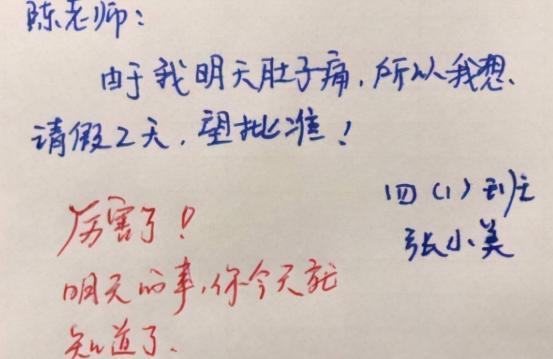 陈老师:
由于我明天肚子痛,所以我想
请假2天,望批准!
四(1)班
张小美
厉害了!
明天的事,你今天就
知道了.